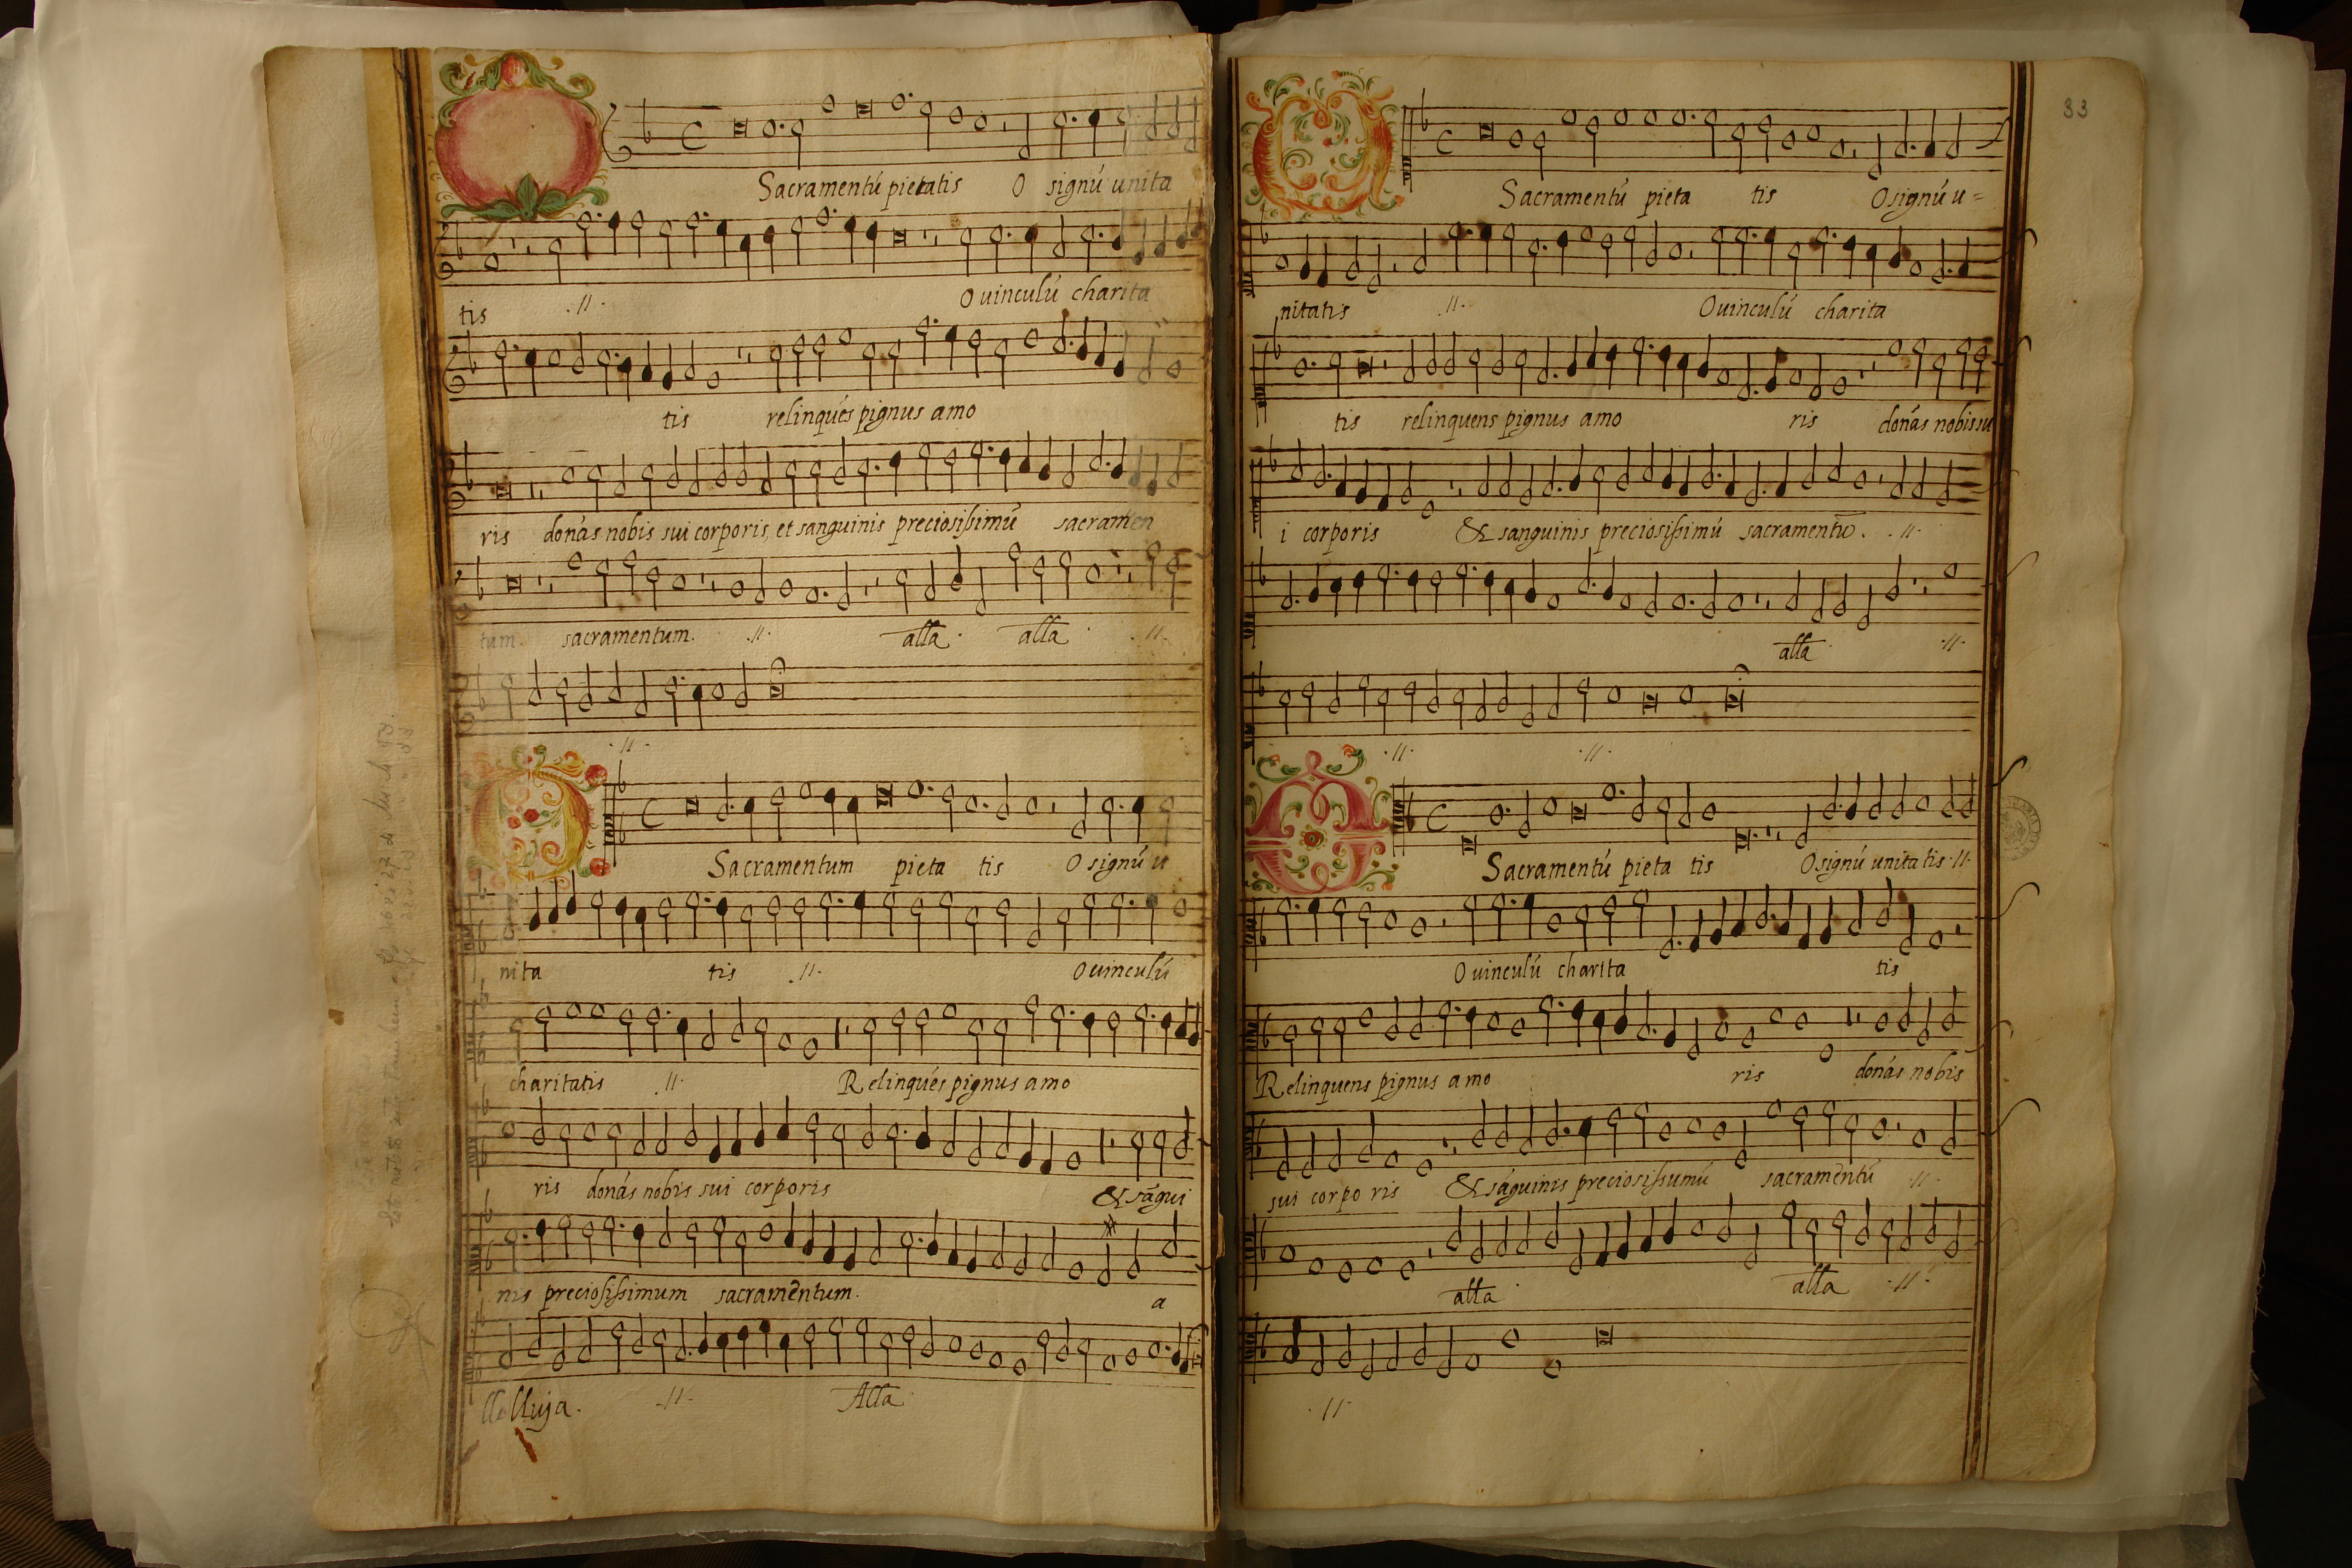 O Sacramentú pietatis O signú unita
tis .//. O uinculú charita
tis relinqués pignus amo
ris donás nobis sui corporis, et sanguinis preciosissimū sacramen
tum. sacramentum. .//. alla. alla. .//.
.//.
O Sacramentum pieta tis O signú u
nita tis .//. O uinculú
charitatis .//. Relinqués pignus amo
ris donás nobis sui corporis & ságui
nis preciosissimum sacramentum. a
llelluja. .//. Alla
33
O Sacramentú pieta tis O signú u=
nitatis .//. O uinculú charita
tis relinquens pignus amo ris donás nobis su
i corporis & sanguinis preciosissimú sacramentū. .//.
alla .//.
.//. .//.
O Sacramentú pieta tis O signú unitatis .//.
O uinculú charita tis
Relinquens pignus amo ris donás nobis
sui corpo ris & ságuinis preciosissumú sacramentú .//.
alla. alla .//.
.//.